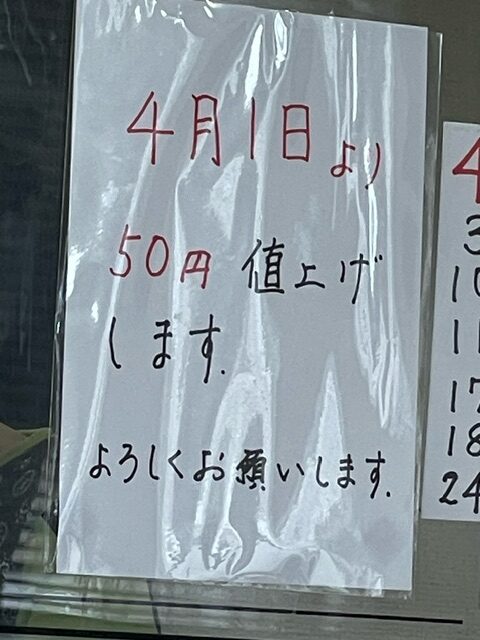 4月1日より
50円 値上げ
します.
よろしくお願いします.
4
3
10
11
17
18
24